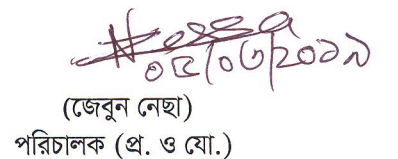 ০৫/০৩/২০১৯
(জেবুন নেছা)
পরিচালক (প্র. ও যো.)